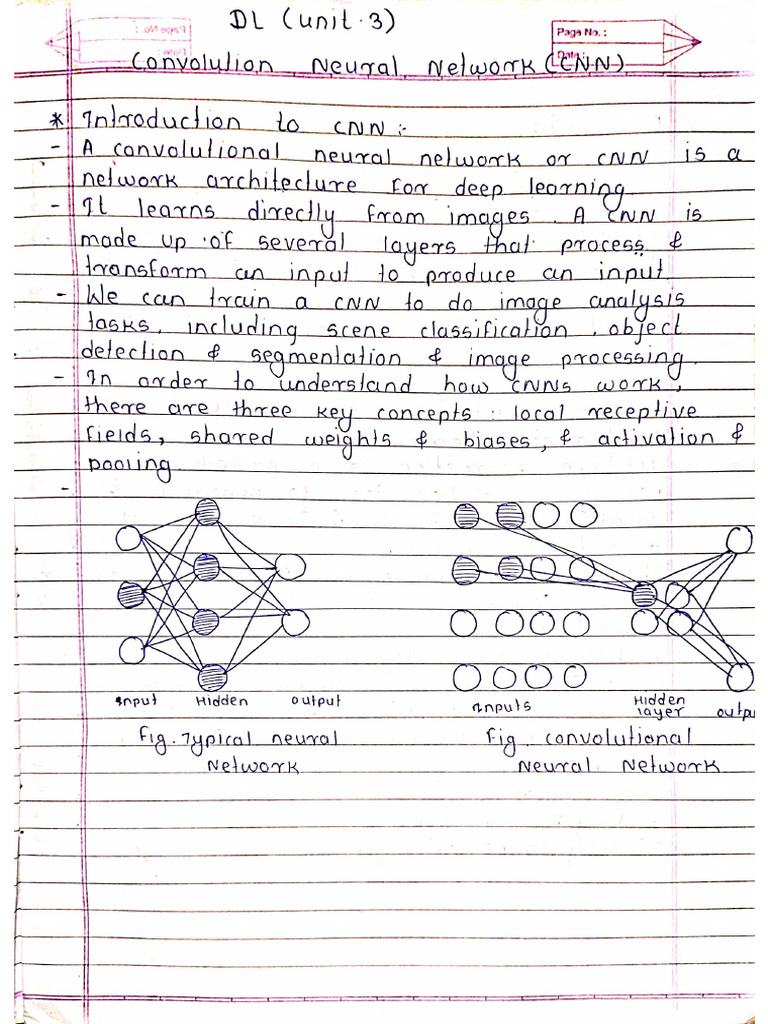 DL (unit.3)
Page No. :
Date :
Convolution Neural Network (CNN)
* Introduction to CNN :-
- A convolutional neural network or CNN is a
network architecture for deep learning.
- It learns directly from images. A CNN is
made up of several layers that process &
transform an input to produce an input.
- We can train a CNN to do image analysis
tasks, including scene classification, object
detection & segmentation & image processing.
- In order to understand how CNNs work,
there are three key concepts : local receptive
fields, shared weights & biases, & activation &
pooling.
-
Input Hidden output
Inputs Hidden layer outpu
Fig. Typical neural
Network
Fig. convolutional
Neural Network